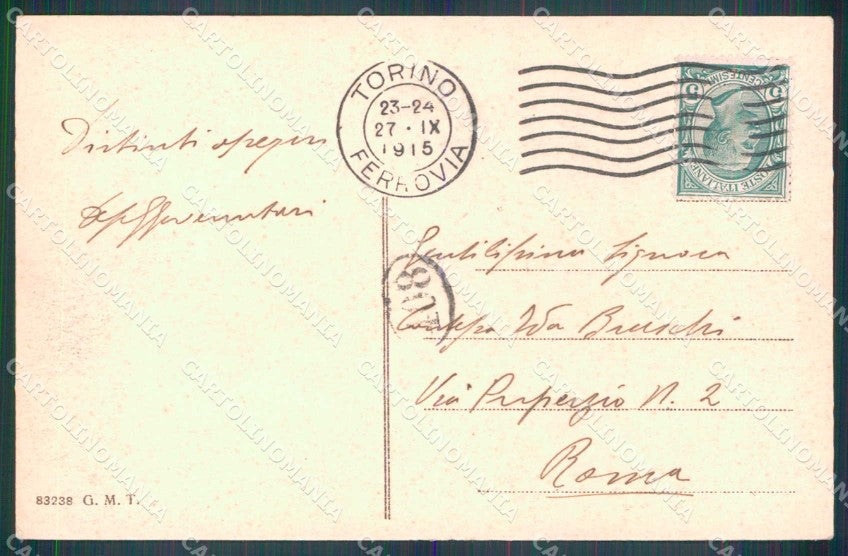 TORINO
23-24
27 · IX
1915
FERROVIA
CENTESIMI
5 5
POSTE ITALIANE
Distinti ossequi
Gentilissima Signora
80
Contessa Ida Bruschi
Via Properzio N. 2
Roma
83238 G. M. T.
CARTOLINOMANIA